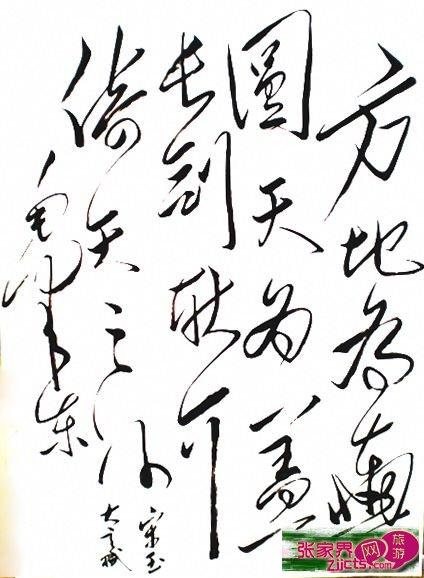 方地为舆
圓天为盖
长剑耿介
倚天之外
宋玉
大言赋
毛泽东
张家界旅游网
zjjcts.com